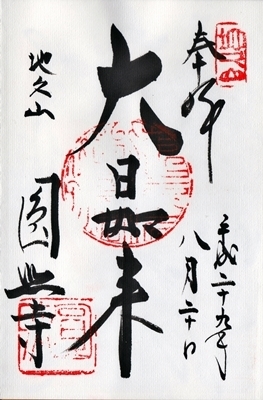 奉拝
平成二十九年
八月二十日
大日如来
地久山
圓照寺